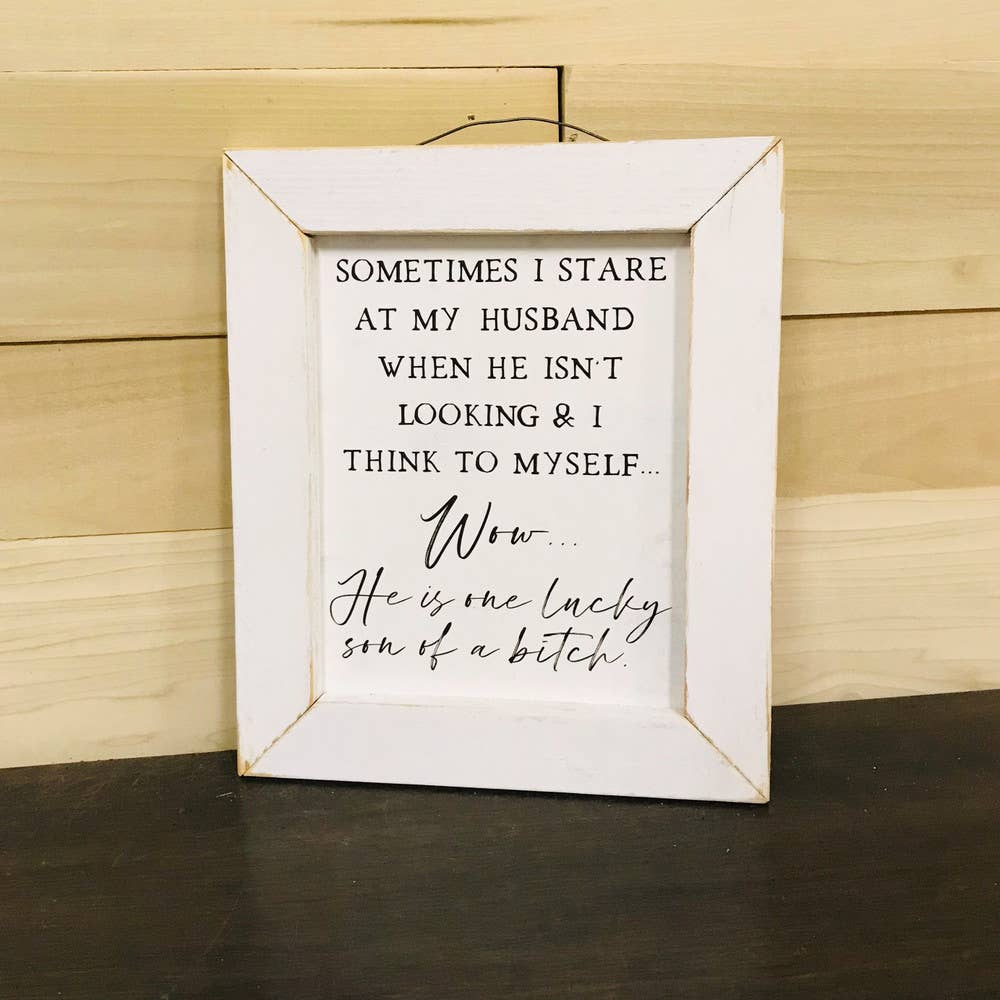 SOMETIMES I STARE
AT MY HUSBAND
WHEN HE ISN'T
LOOKING & I
THINK TO MYSELF...
Wow...
He is one lucky
son of a bitch.